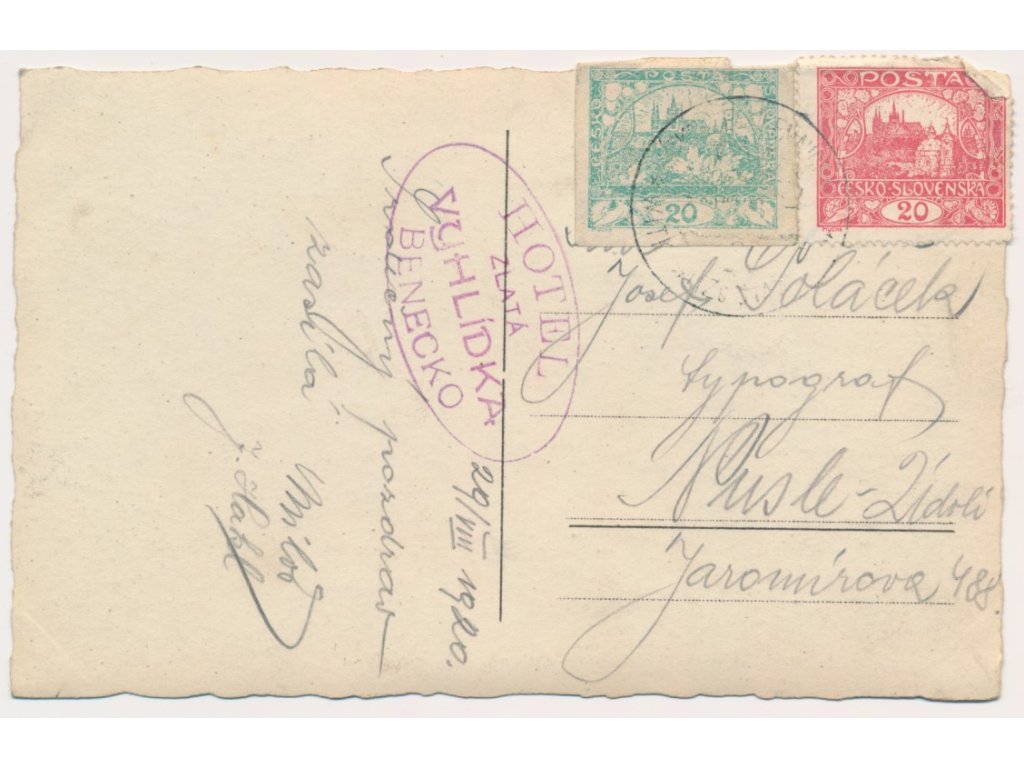 POSTA
ČESKO
20
POSTA
ČESKO-SLOVENSKA
20
MUCHA
HOTEL
ZLATÁ
VYHLÍDKA
BENECKO
29/VIII 1920.
Srdečný pozdrav
zasílá
Miloš
Josef Poláček
typograf
Nusle-Údolí
Jaromírova 488.